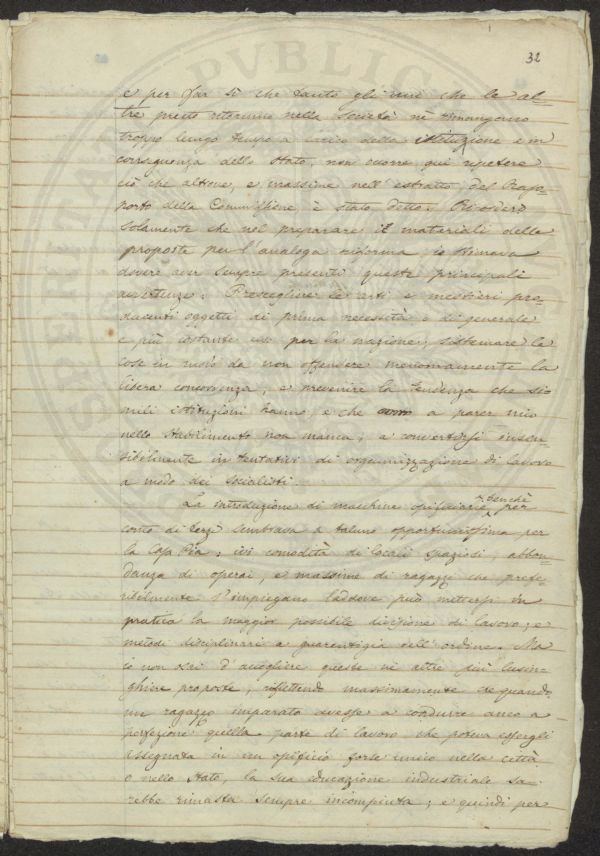 32
e per far sì che tanto gli uni che le al-
tre presto ritornino nella Società nè rimangono
troppo lungo tempo a carico della istituzione e in
conseguenza dello Stato, non ocorre quì ripetere
ciò che altrove, e massime nell'estratto del Rap-
porto della Commissione è stato detto. Ricorderò
solamente che nel preparare i materiali delle
proposte per l'analoga riforma, io stimava
dovere aver sempre presenti queste principali
avvertenze: Prescegliere le arti e mestieri pro-
ducenti oggetti di prima necessità o di generale
e più costante uso per la nazione; sistemare le
cose in modo da non offendere menomamente la
libera concorrenza; e prevenire la tendenza che si-
mili istituzioni hanno e che a parer mio
nello Stabilimento non manca, a convertirsi insen-
sibilmente in tentativi di organizzazione di lavoro
a modo dei Socialisti.
La introduzione di macchine benchè per
conto di terzi sembrava a taluno opportunissima per
la Casa Pia; ivi comodità di locali spaziosi, abbon-
danza di operai, e massime di ragazzi che prefe-
ribilmente s'impiegano laddove può mettersi in
pratica la maggior possibile divisione di lavoro; e
metodi disciplinari a guarentigia dell'ordine. Ma
io non osai d'accogliere queste nè altre più lusin-
ghiere proposte, riflettendo massimamente che quando
un ragazzo imparato avesse a condurre anco a
perfezione quella parte di lavoro che poteva essergli
assegnata in un opificio forse unico nella città
o nello Stato, la sua educazione industriale sa-
rebbe rimasta sempre incompiuta; e quindi per